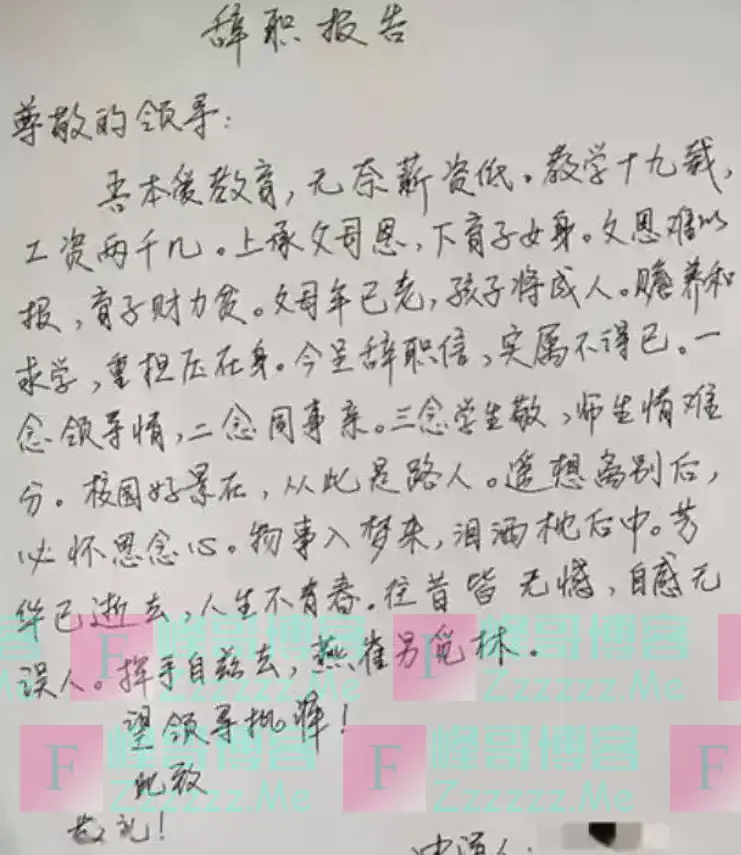 辞职报告
尊敬的领导：
吾本爱教育，无奈薪资低。教学十九载，
工资两千几。上承父母恩，下育子女身。父恩难以
报，育子财力贫。父母年已老，孩子将成人。赡养和
求学，重担压在身。今呈辞职信，实属不得已。一
念领导情，二念同事亲。三念学生敬，师生情难
分。校园好景在，从此是路人。遥想离别后，
必怀思念心。物事入梦来，泪洒枕后中。芳
华已逝去，人生不青春。往昔皆无憾，自感无
误人。挥手自兹去，燕雀另觅林。
望领导批准！
此致
敬礼！
申请人：
F 峰哥博客
Zzzzzz.Me
F 峰哥博客
Zzzzzz.Me
F 峰哥博客
Zzzzzz.Me
F 峰哥博客
Zzzzzz.Me
F